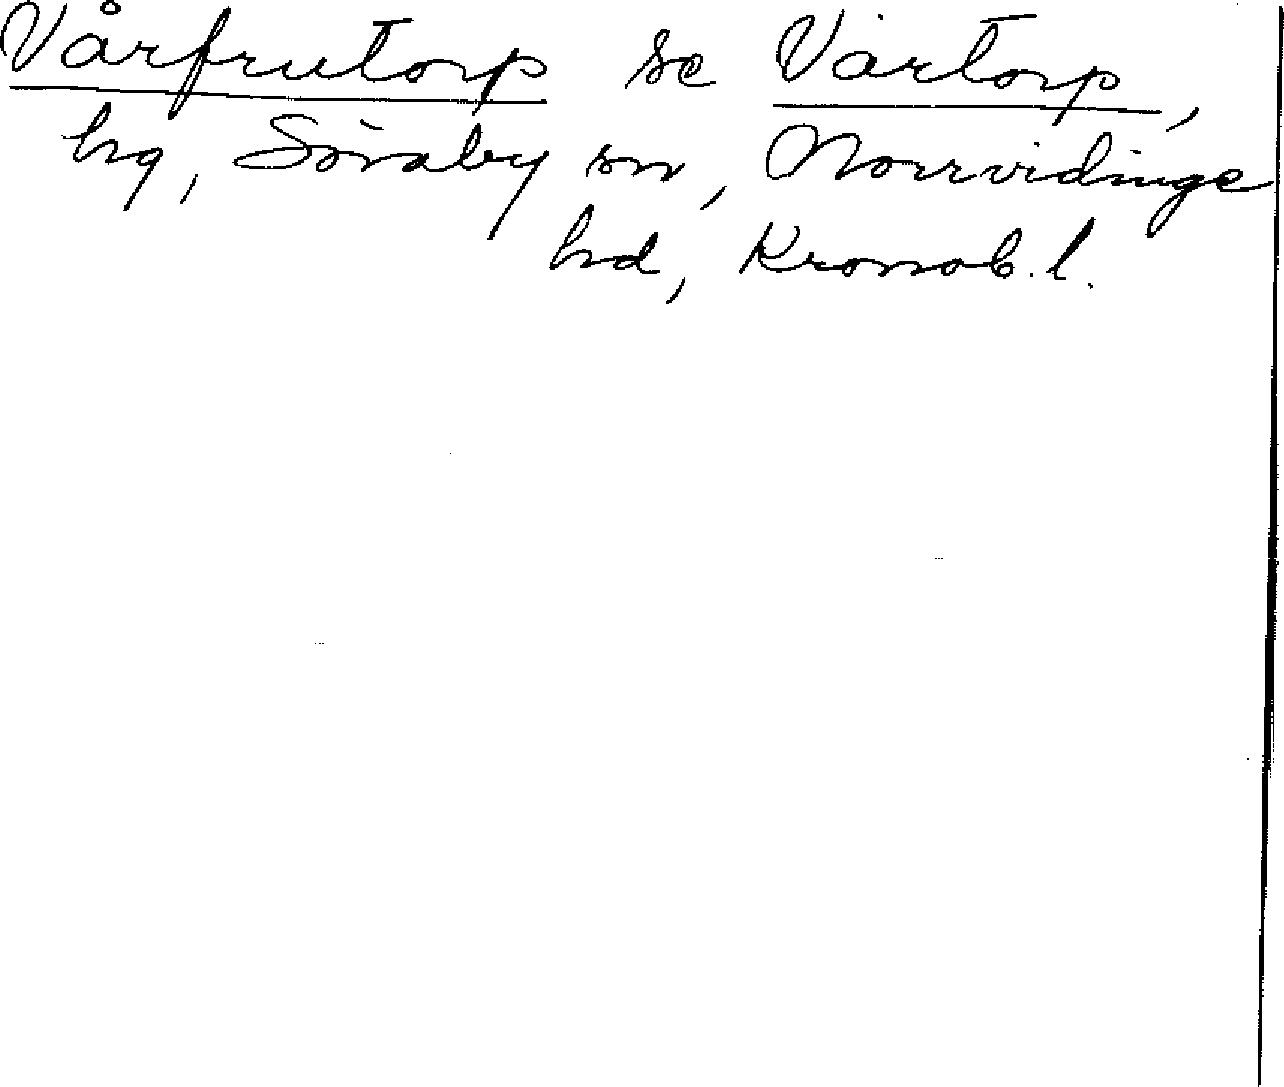 Vårfrutorp se Värtorp,
hg, Söraby sn, Norrvidinge
hd, Kronob. l.